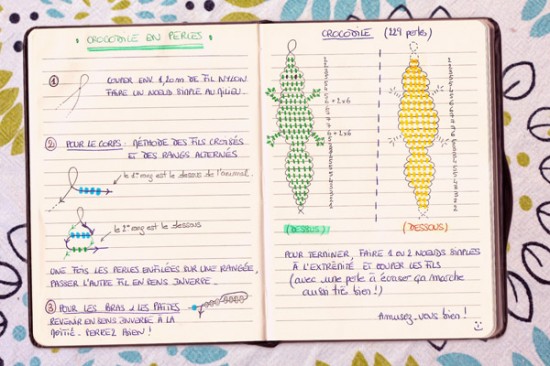 CROCODILE EN PERLES
1 COUPER ENV. 1,20m DE FIL NYLON
FAIRE UN NOEUD SIMPLE AU MILIEU.
2 POUR LE CORPS : MÉTHODE DES FILS CROISÉS
ET DES RANGS ALTERNÉS
le 1er rang est le dessus de l'animal.
le 2e rang est le dessous
UNE FOIS LES PERLES ENFILÉES SUR UNE RANGÉE,
PASSER L'AUTRE FIL EN SENS INVERSE.
3 POUR LES BRAS & LES PATTES
REVENIR EN SENS INVERSE À LA
MOITIÉ. SERREZ BIEN !
CROCODILE (229 perles)
+ 2x6
+ 2x6
(DESSUS)
(DESSOUS)
POUR TERMINER, FAIRE 1 OU 2 NOEUDS SIMPLES
À L'EXTRÉMITÉ ET COUPER LES FILS
(avec une perle à écraser ça marche
aussi très bien !)
Amusez-vous bien !